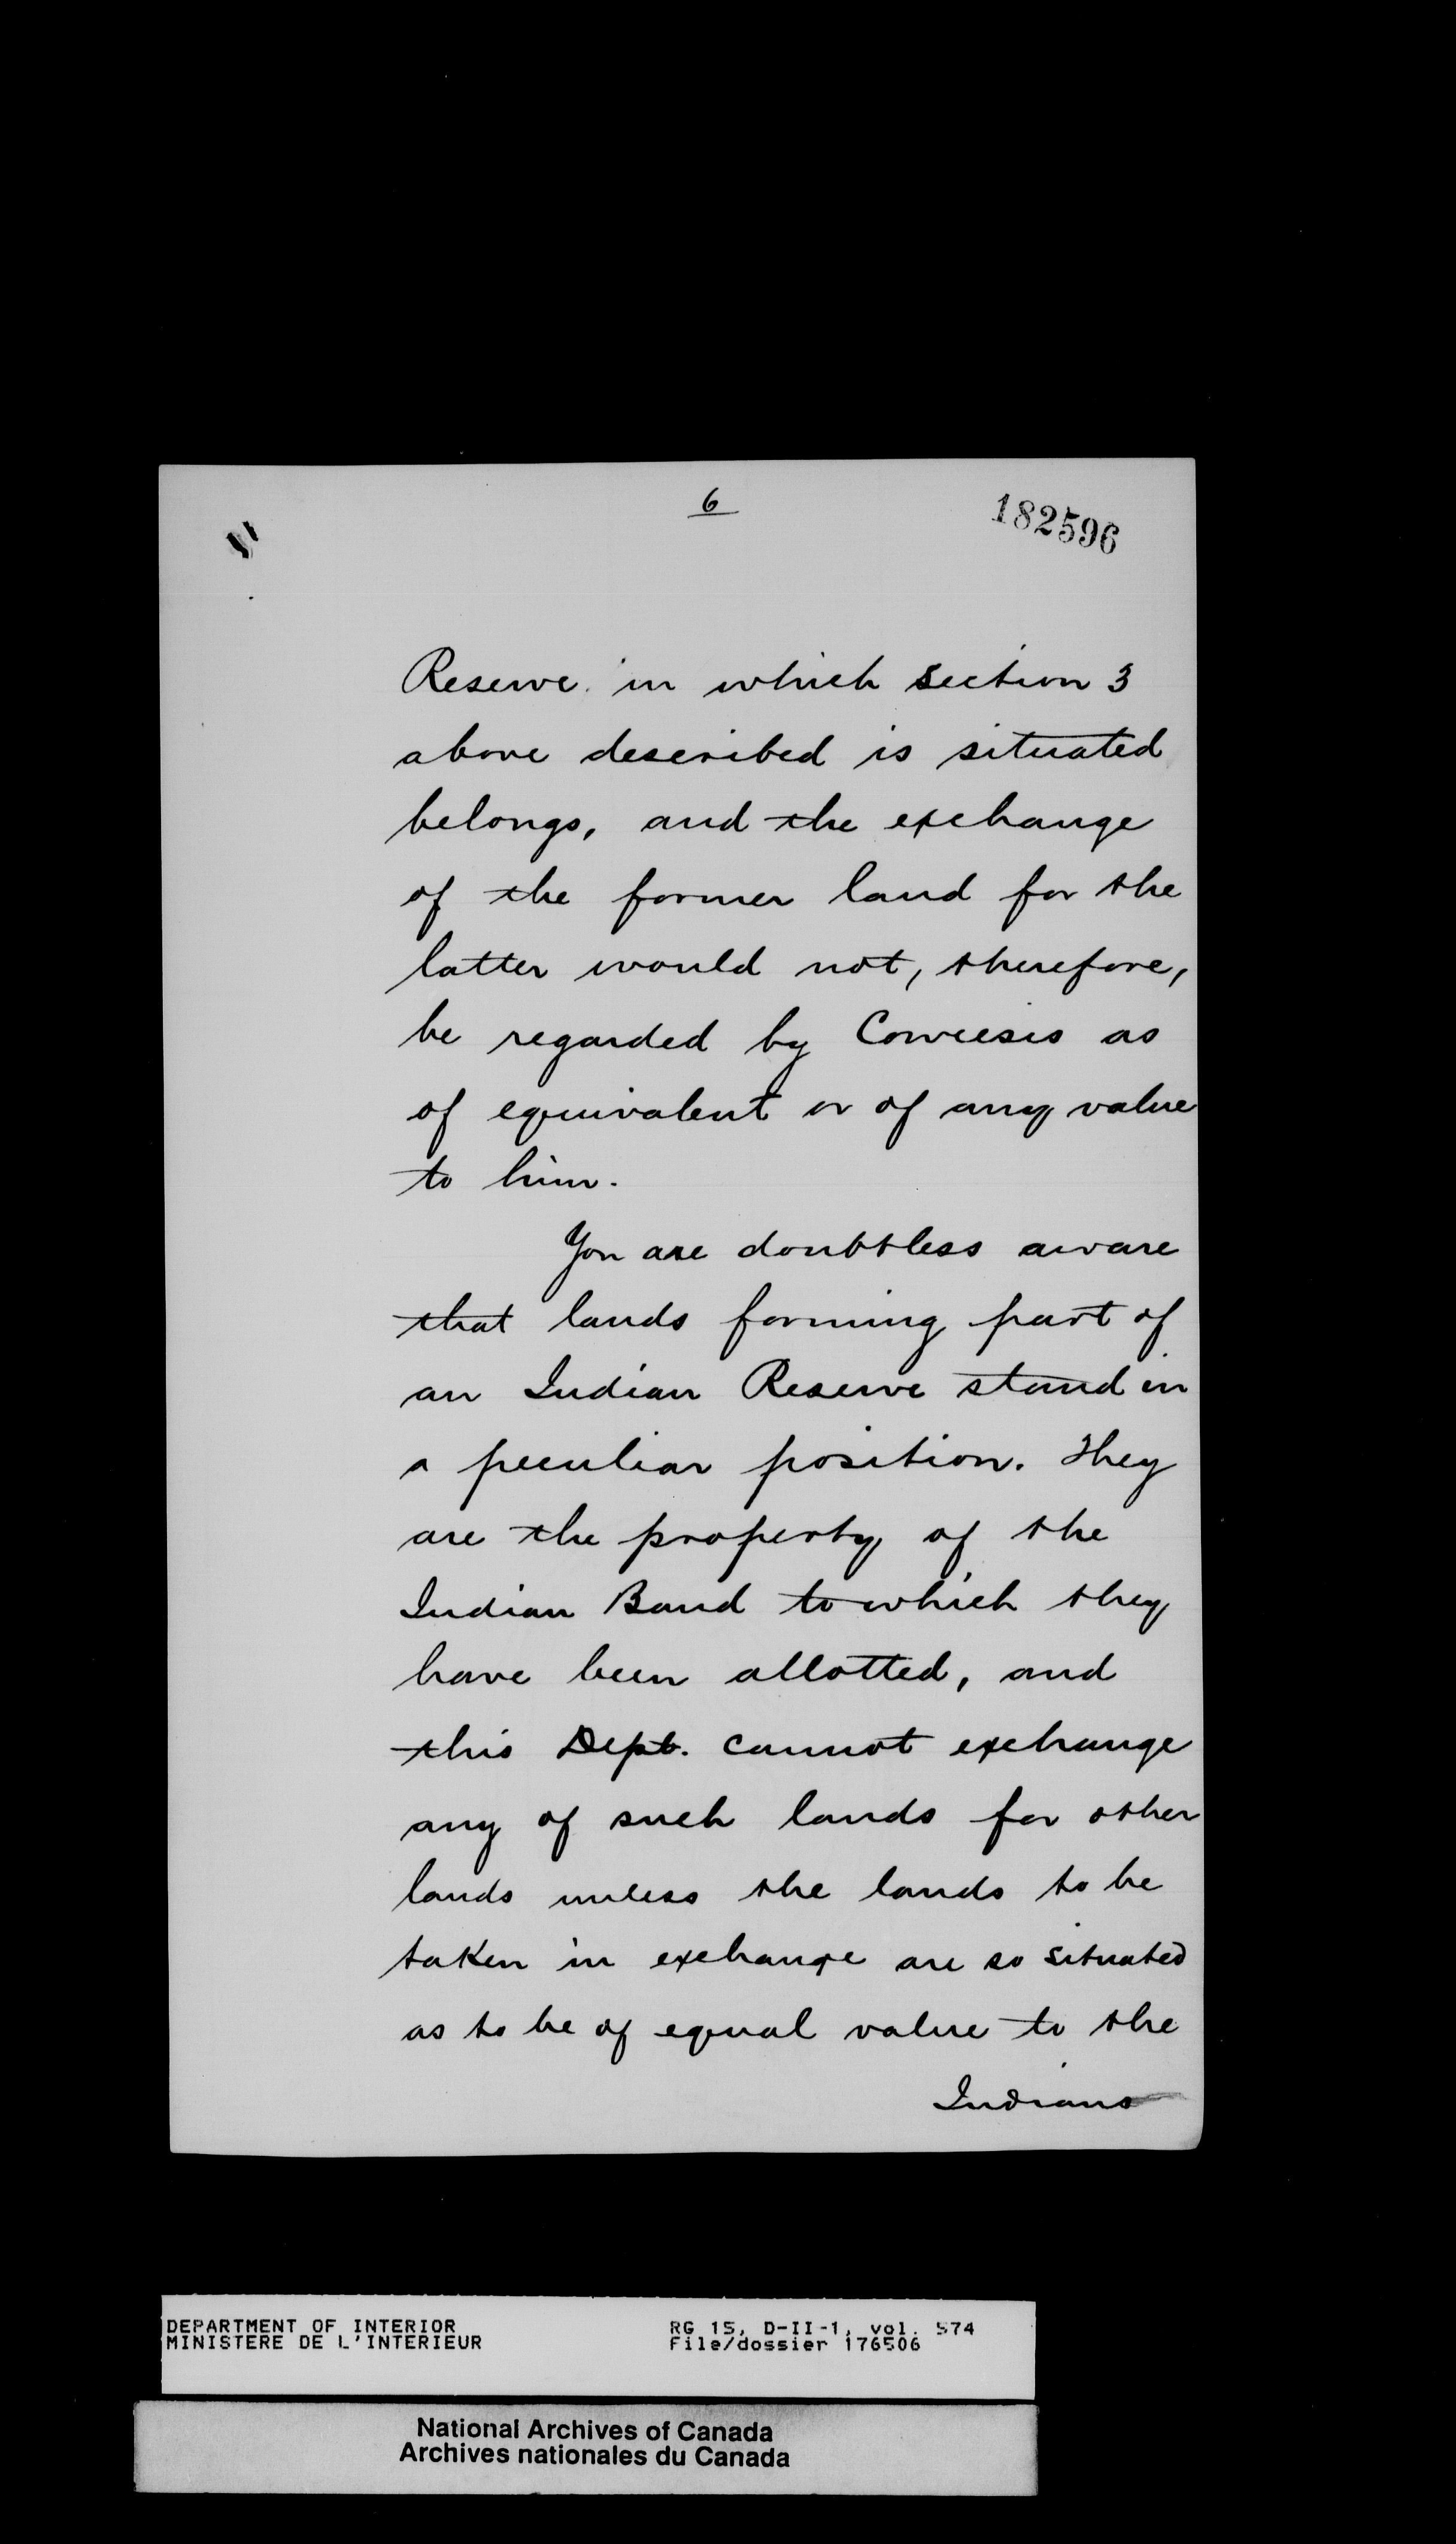 6
182596
Reserve in which section 3
above described is situated
belongs, and the exchange
of the former land for the
latter would not, therefore,
be regarded by Coweesis as
of equivalent or of any value
to him.
You are doubtless aware
that lands forming part of
an Indian Reserve stand in
a peculiar position. They
are the property of the
Indian Band to which they
have been allotted, and
this Dept. cannot exchange
any of such lands for other
lands unless the lands to be
taken in exchange are so situated
as to be of equal value to the
Indians
DEPARTMENT OF INTERIOR
MINISTERE DE L'INTERIEUR
RG 15, D-II-1, vol. 574
File/dossier 176506
National Archives of Canada
Archives nationales du Canada